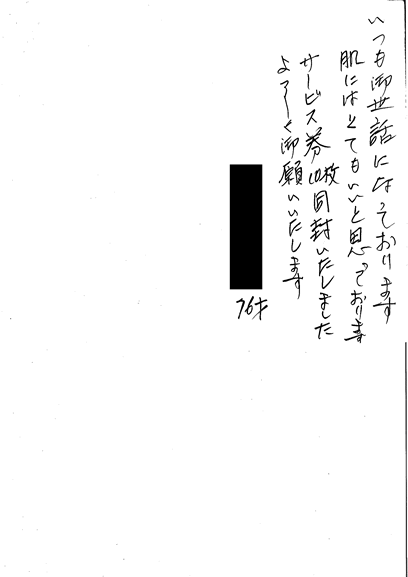 いつも御世話になっております
肌にはとてもいいと思っております
サービス券10枚同封いたしました
よろしく御願いいたします
76才